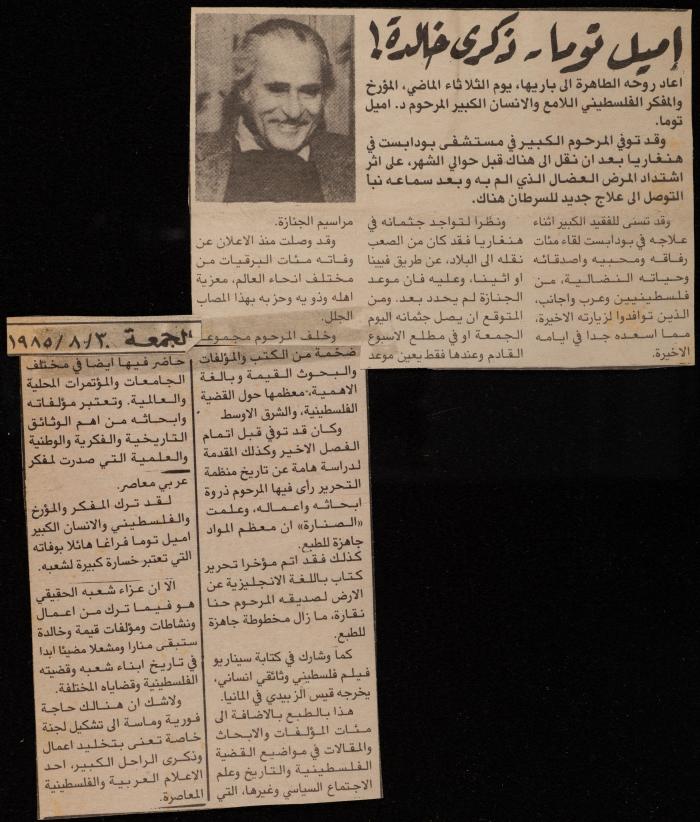 اميل توما - ذكرى خالدة!
اعاد روحه الطاهرة الى باريها، يوم الثلاثاء الماضي، المؤرخ
والمفكر الفلسطيني اللامع والانسان الكبير المرحوم د. اميل
توما.
وقد توفي المرحوم الكبير في مستشفى بودابست في
هنغاريا بعد ان نقل الى هناك قبل حوالي الشهر، على اثر
اشتداد المرض العضال الذي الم به وبعد سماعه نبأ
التوصل الى علاج جديد للسرطان هناك.
وقد تسنى للفقيد الكبير اثناء
علاجه في بودابست لقاء مئات
رفاقه ومحبيه واصدقائه
وحياته النضالية، من
فلسطينيين وعرب واجانب،
الذين توافدوا لزيارته الاخيرة،
مما اسعده جدا في ايامه
الاخيرة.
ونظرا لتواجد جثمانه في
هنغاريا فقد كان من الصعب
نقله الى البلاد، عن طريق فيينا
او اثينا، وعليه فان موعد
الجنازة لم يحدد بعد. ومن
المتوقع ان يصل جثمانه اليوم
الجمعة او في مطلع الاسبوع
القادم وعندها فقط يعين موعد
مراسيم الجنازة.
وقد وصلت منذ الاعلان عن
وفاته مئات البرقيات من
مختلف انحاء العالم، معزية
اهله وذويه وحزبه بهذا المصاب
الجلل.
وخلف المرحوم مجموعة
ضخمة من الكتب والمؤلفات
والبحوث القيمة وبالغة
الاهمية، معظمها حول القضية
الفلسطينية، والشرق الاوسط
وكان قد توفي قبل اتمام
الفصل الاخير وكذلك المقدمة
لدراسة هامة عن تاريخ منظمة
التحرير رأى فيها المرحوم ذروة
ابحاثه واعماله، وعلمت
«الصنارة» ان معظم المواد
جاهزة للطبع.
كذلك فقد اتم مؤخرا تحرير
كتاب باللغة الانجليزية عن
الارض لصديقه المرحوم حنا
نقارة، ما زال مخطوطة جاهزة
للطبع.
كما وشارك في كتابة سيناريو
فيلم فلسطيني وثائقي انساني،
يخرجه قيس الزبيدي في المانيا.
هذا بالطبع بالاضافة الى
مئات المؤلفات والابحاث
والمقالات في مواضيع القضية
الفلسطينية والتاريخ وعلم
الاجتماع السياسي وغيرها، التي
الجمعة ١٩٨٥/٨/٣٠
حاضر فيها ايضا في مختلف
الجامعات والمؤتمرات المحلية
والعالمية. وتعتبر مؤلفاته
وابحاثه من اهم الوثائق
التاريخية والفكرية والوطنية
والعلمية التي صدرت لمفكر
عربي معاصر.
لقد ترك المفكر والمؤرخ
والفلسطيني والانسان الكبير
اميل توما فراغا هائلا بوفاته
التي تعتبر خسارة كبيرة لشعبه.
الا ان عزاء شعبه الحقيقي
هو فيما ترك من اعمال
ونشاطات ومؤلفات قيمة وخالدة
ستبقى منارا ومشعلا مضيئا ابدا
في تاريخ ابناء شعبه وقضيته
الفلسطينية وقضاياه المختلفة.
ولاشك ان هنالك حاجة
فورية وماسة الى تشكيل لجنة
خاصة تعنى بتخليد اعمال
وذكرى الراحل الكبير، احد
الاعلام العربية والفلسطينية
المعاصرة.